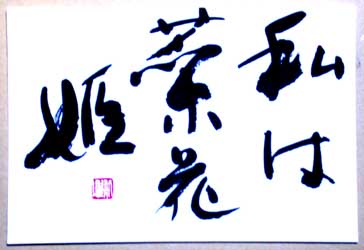 私は
菜花
姫